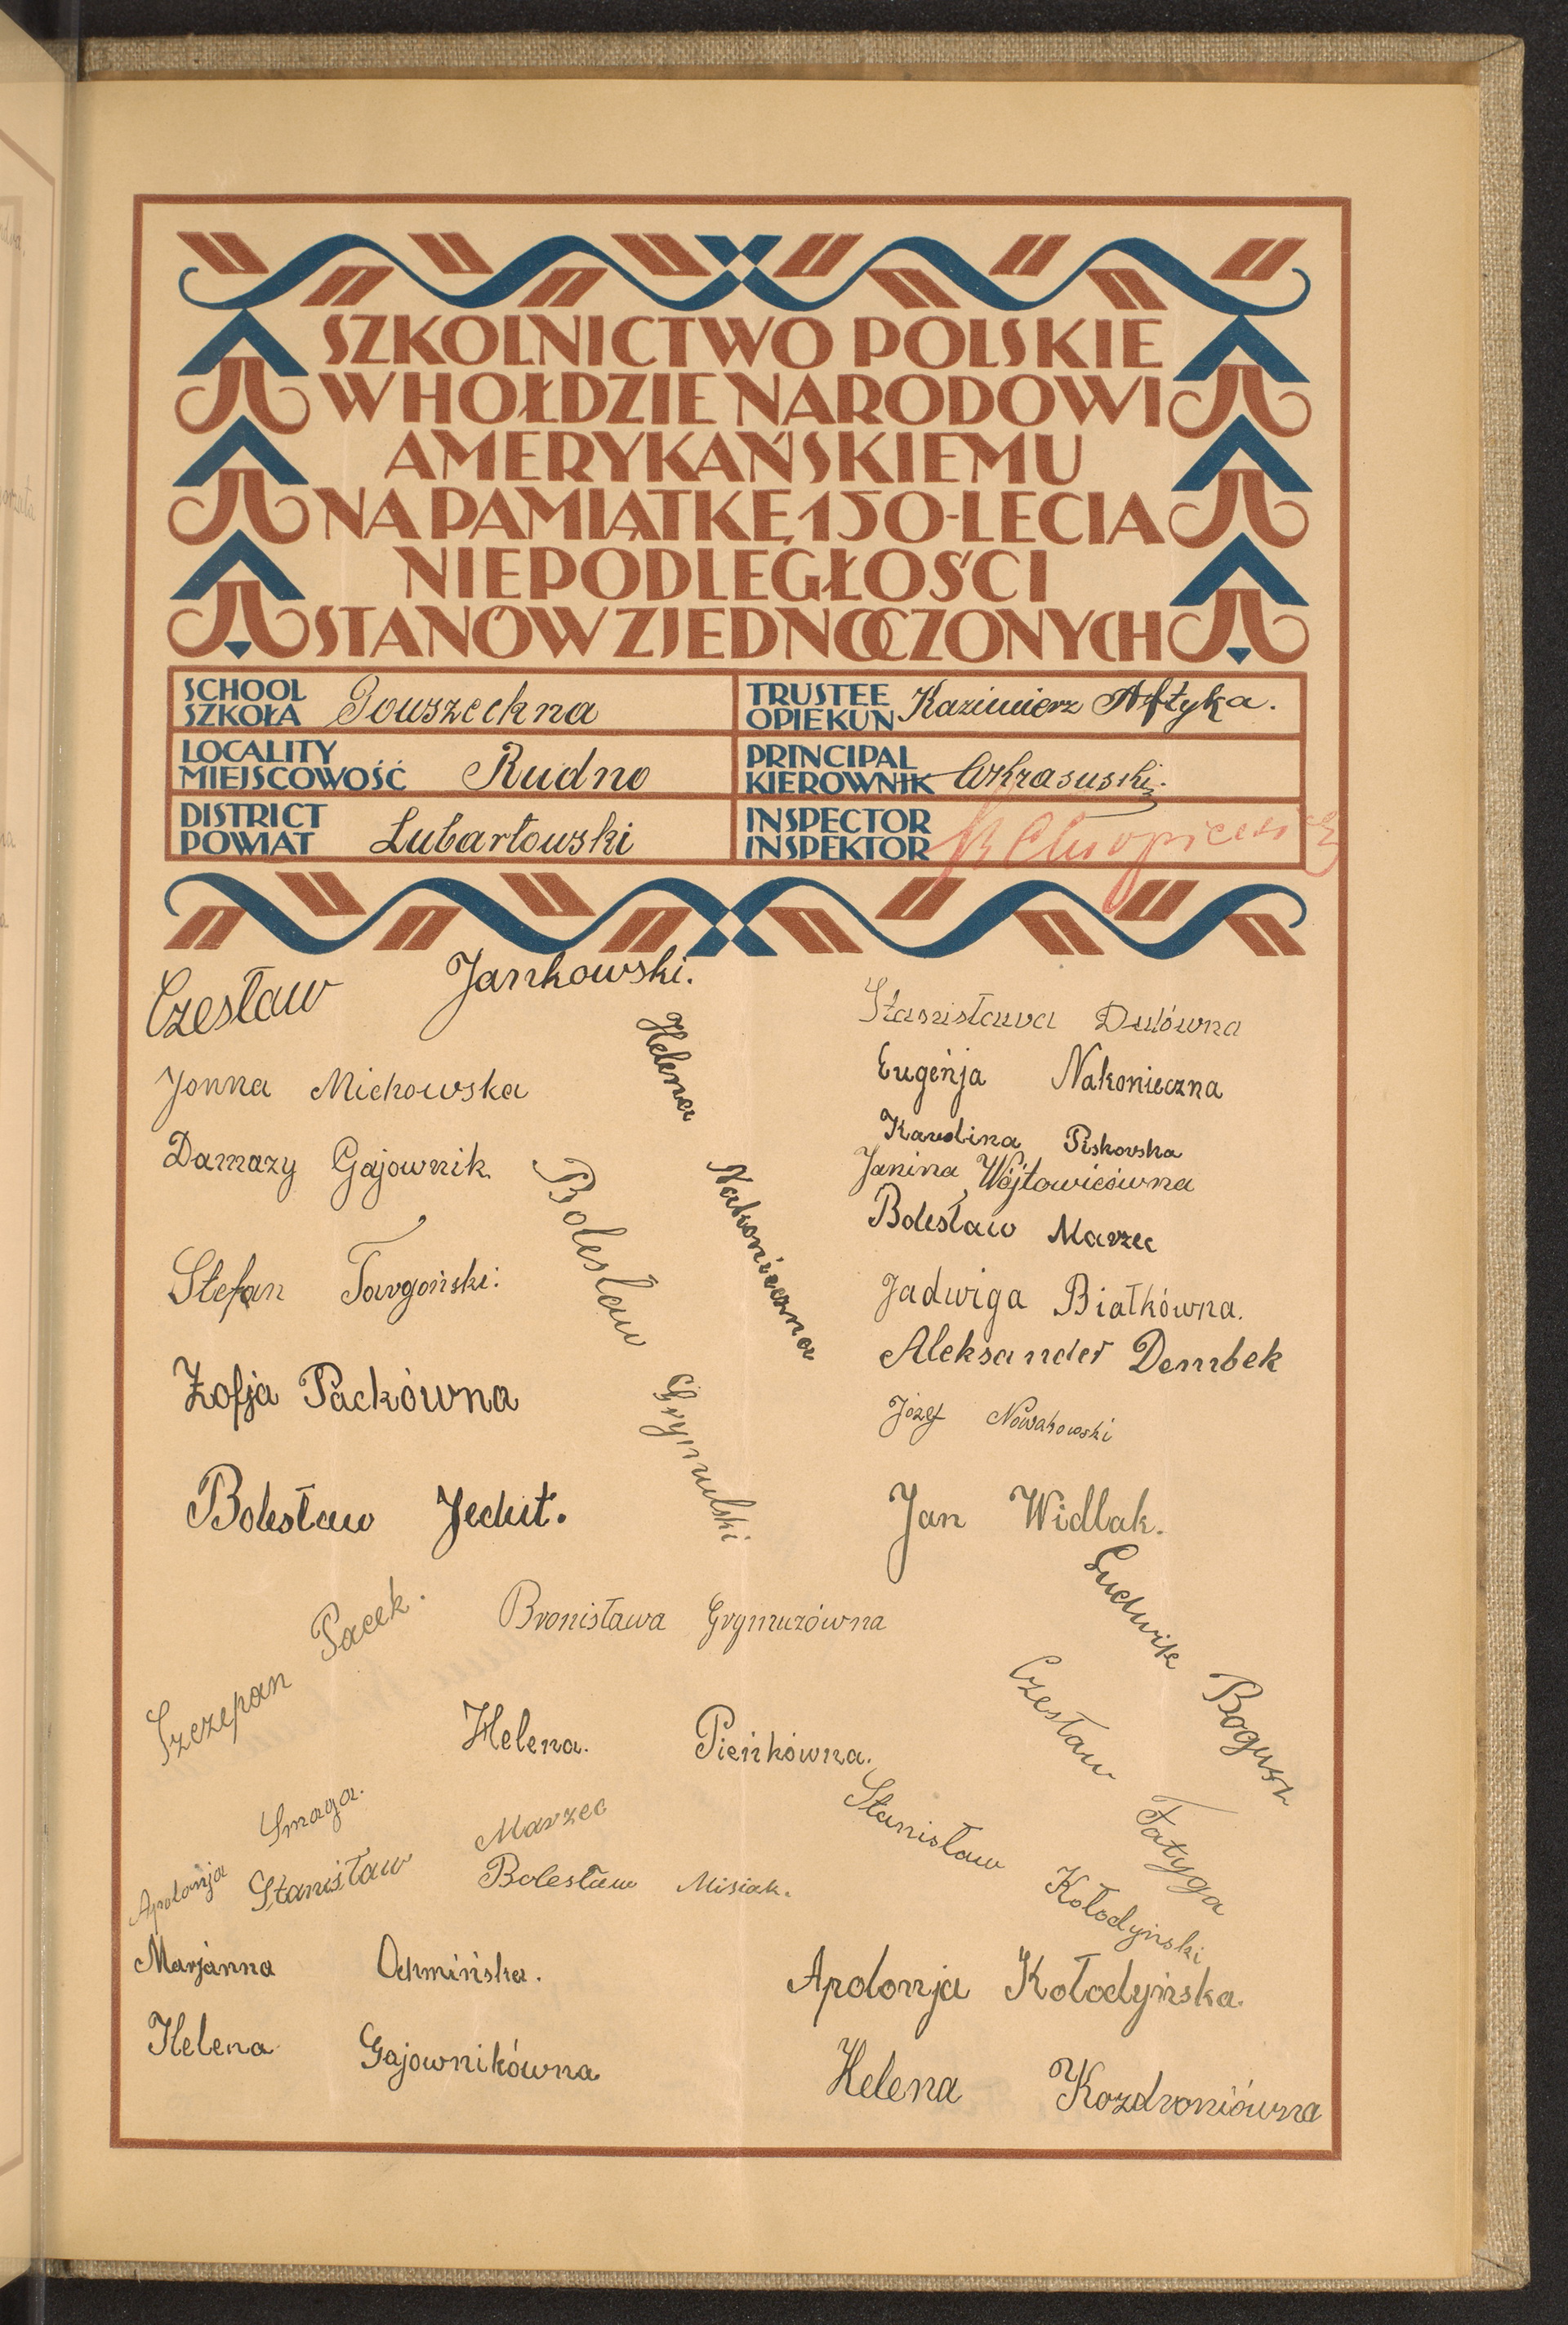 SZKOLNICTWO POLSKIE
W HOŁDZIE NARODOWI
AMERYKAŃSKIEMU
NA PAMIĄTKĘ 150-LECIA
NIEPODLEGŁOŚCI
STANÓW ZJEDNOCZONYCH
SCHOOL
SZKOŁA Powszechna
TRUSTEE
OPIEKUN Kazimierz Aftyka.
LOCALITY
MIEJSCOWOŚĆ Rudno
PRINCIPAL
KIEROWNIK WKrasuski
DISTRICT
POWIAT Lubartowski
INSPECTOR
INSPEKTOR
Czesław Jankowski.
Jonna Michowska
Damazy Gajownik
Stefan Targoński.
Zofja Packówna
Bolesław Jechit.
Helena Nakonieczna
Bolesław Grymulski
Stanisława Dulówna
Eugenja Nakonieczna
Karolina Piskorska
Janina Wójtowiczówna
Bolesław Marzec
Jadwiga Białkówna.
Aleksander Dembek
Józef Nowakowski
Jan Widlak.
Ludwik Bogusz
Czesław Fatyga
Szczepan Pacek.
Bronisława Grymuzówna
Helena Pieńkówna.
Stanisław Kołodyński
Apolonja Smaga.
Stanisław Marzec
Bolesław Misiak.
Marjanna Ochmińska.
Apolonja Kołodyńska.
Helena Gajownikówna
Helena Kozdroniówna